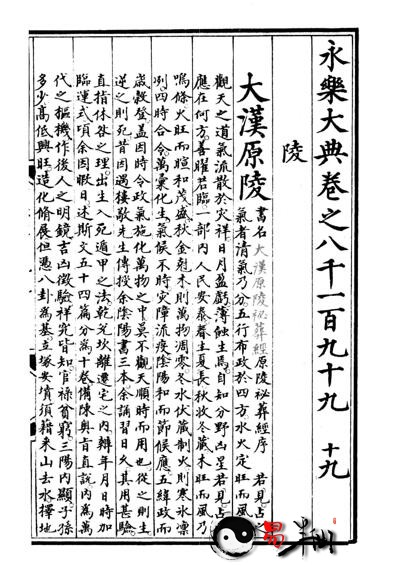 永樂大典卷之八千一百九十九 十九
陵
大漢原陵 書名大漢原陵祕葬經 原陵祕葬經序
氣者清氣乃分五行布政於四方水火定
觀天之道氣流散於災祥日月盈虧薄蝕生焉自知分野凶星若見占之
應在何方善曜若臨一部內人民安泰春生夏長秋收冬藏木旺而風乃
鳴條火旺而暄和茂盛秋金尅木則萬物凋零冬水伏藏制火則寒氷凛
列四時合令萬彙化生氣候不時災障流疾陰陽和而節候應五緯政而
歲穀登蓋因時令政氣施化萬物之中莫不觀天順時而用也從之則生
逆之則死昔因遇樓敬先生傳授余陰陽書三本余誦習日久其用甚驗
直指休咎之理出生入死遁甲之法乾兌坎離遷宅之內辨年月日時加
臨運式項余因暇日述斯文五十四篇分為十卷備陳奧旨直說內為萬
代之樞機作後人之明鏡吉凶徵驗祥究皆知官祿貧窮三陽內顯子孫
多少高低興旺造化脩展但憑八卦為基立塚安墳須藉來山去水擇地